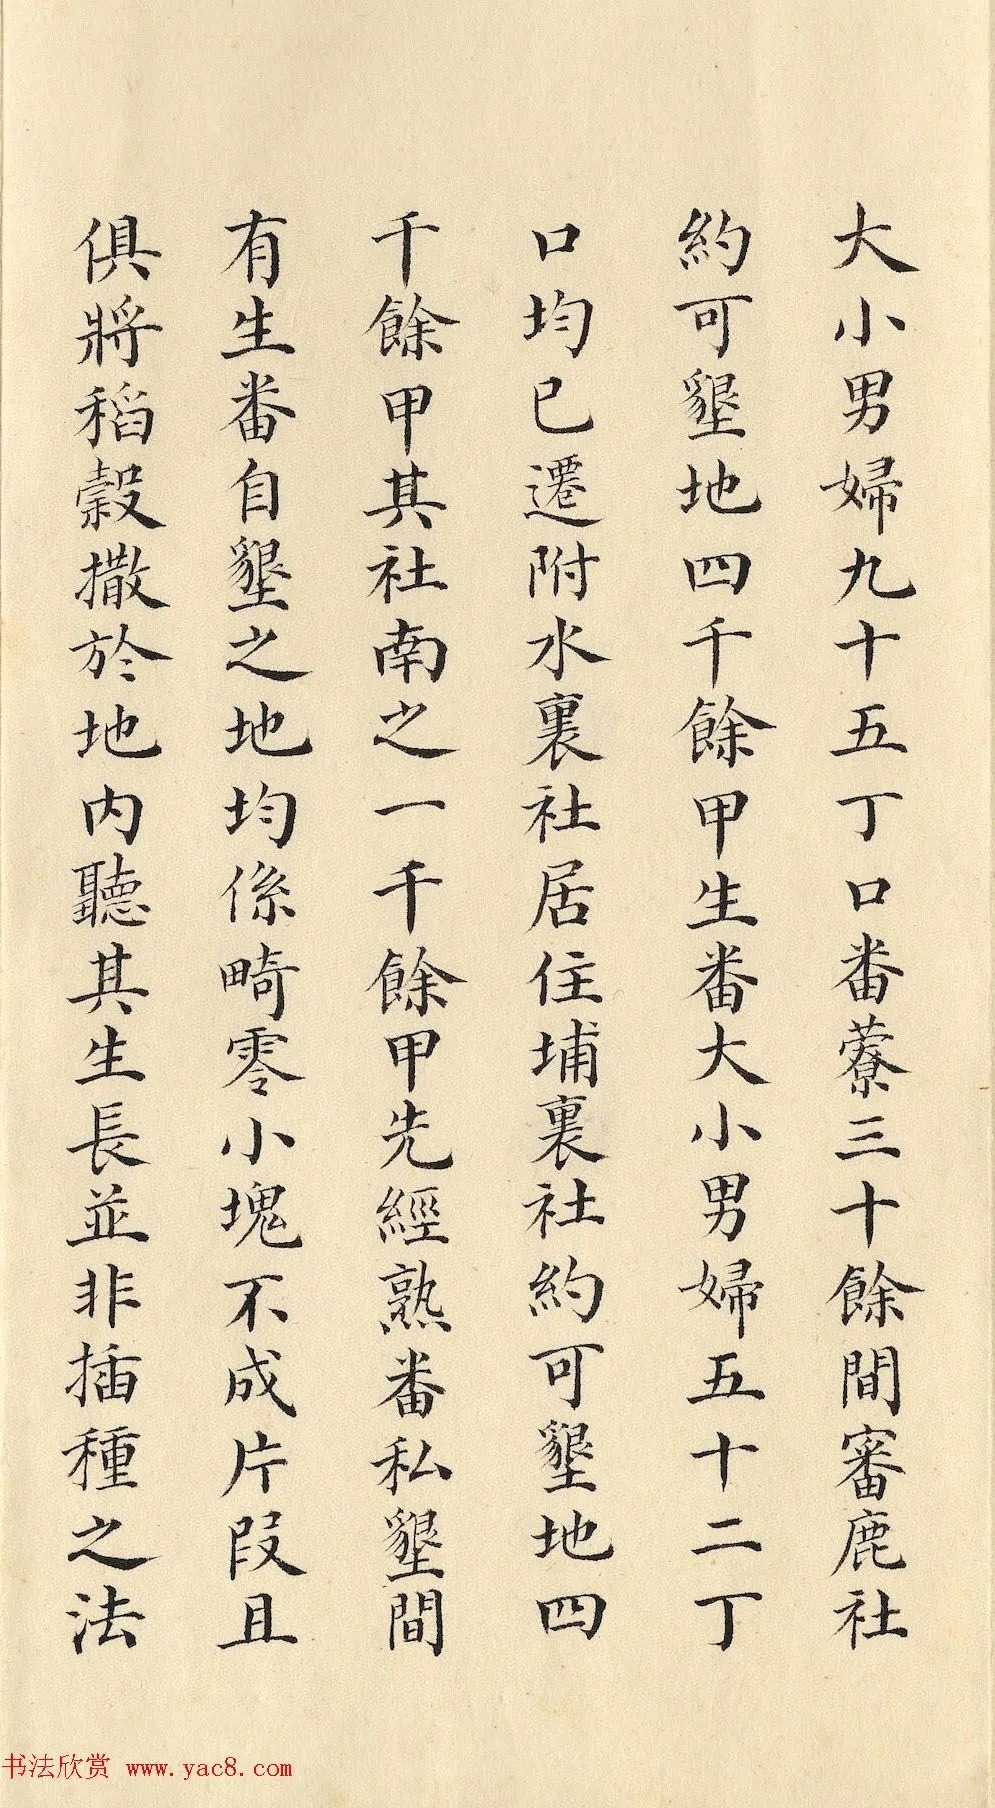 大小男婦九十五丁口番藔三十餘間審鹿社
約可墾地四千餘甲生番大小男婦五十二丁
口均已遷附水裏社居住埔裏社約可墾地四
千餘甲其社南之一千餘甲先經熟番私墾間
有生番自墾之地均係畸零小塊不成片段且
俱將稻穀撒於地內聽其生長並非插種之法
书法欣赏 www.yac8.com